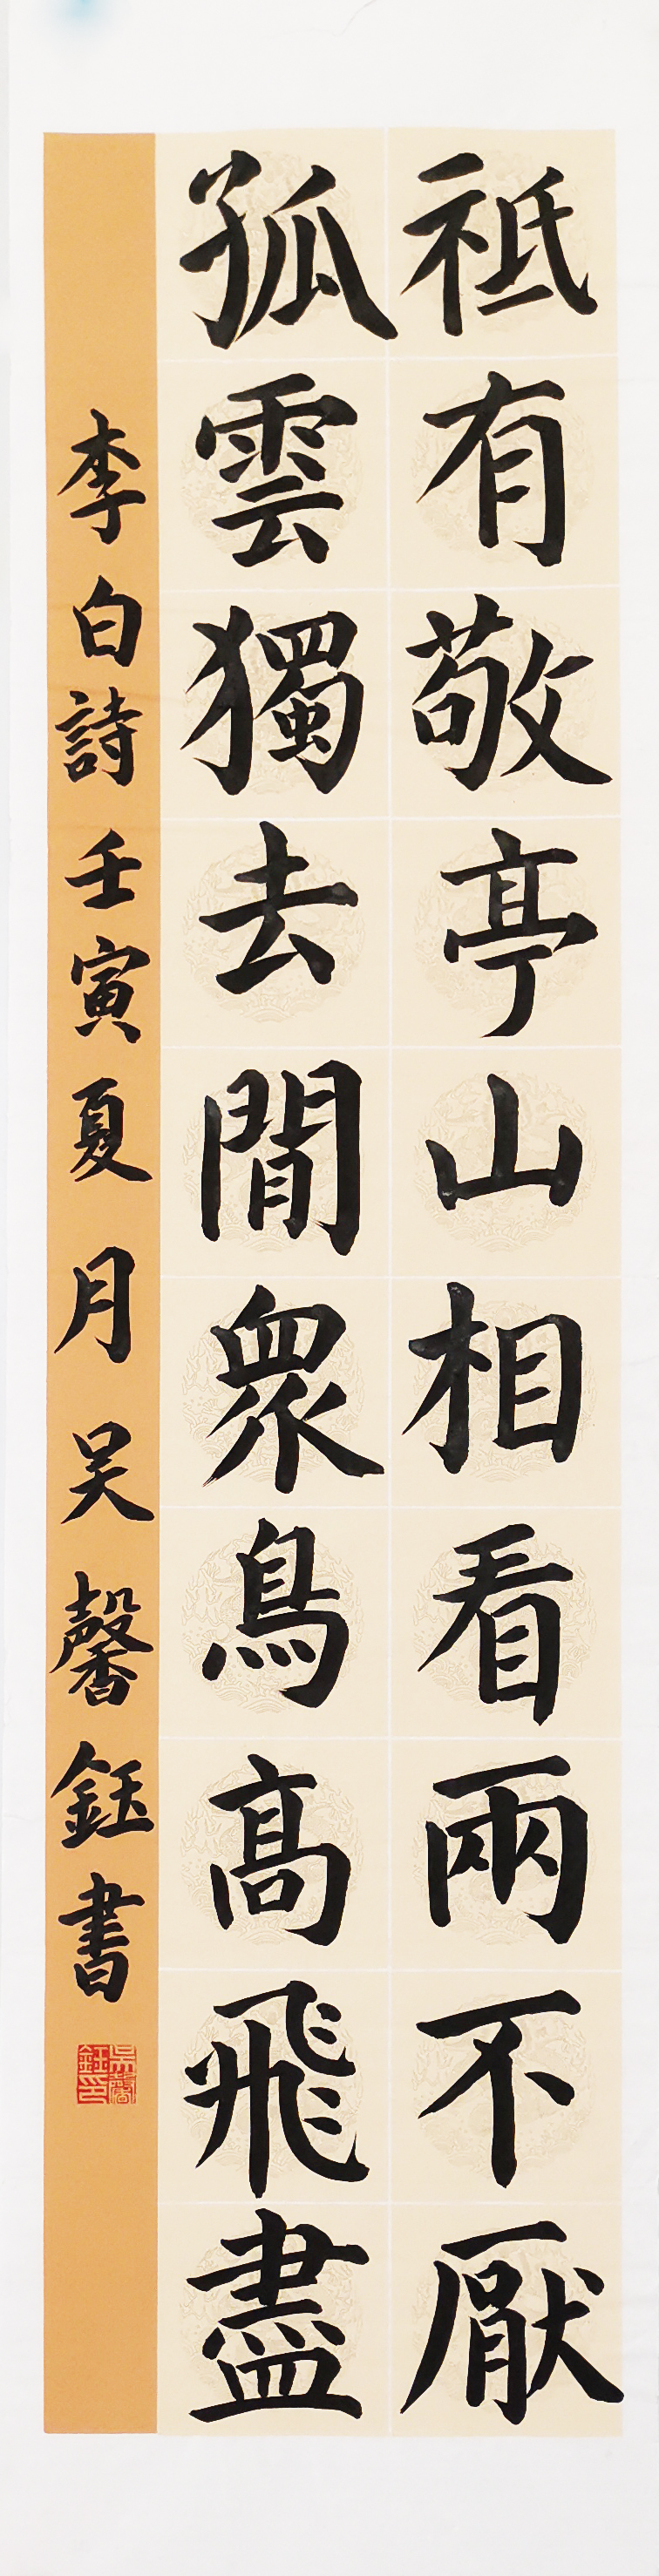 祗有敬亭山相看兩不厭
孤雲獨去閒衆鳥高飛盡
李白詩壬寅夏月吴馨鈺書
吴馨鈺印